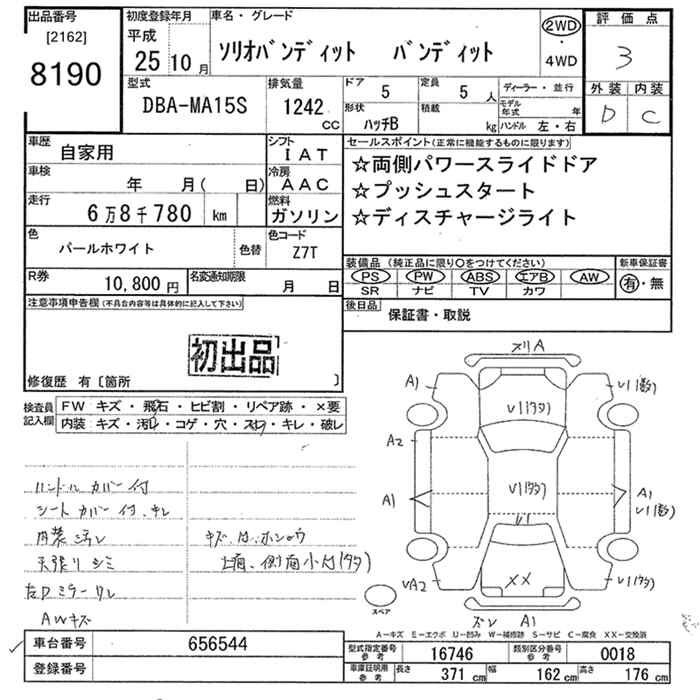 出品番号
[2162]
8190
初度登録年月
平成
25 10 月
車名・グレード
ソリオバンディット バンディット
2WD
・
4WD
評価点
3
外装 内装
D C
型式
DBA-MA15S
排気量
1242
cc
ドア
5
定員
5 人
形状
ハッチB
積載
kg
ディーラー・並行
モデル年式 年
ハンドル 左・右
車歴
自家用
シフト
IAT
車検
年 月( 日)
冷房
AAC
走行
6万8千780 km
燃料
ガソリン
色
パールホワイト
色替
色コード
Z7T
R券
10,800 円
名変通知期限
月 日
セールスポイント(正常に機能するものに限ります)
☆両側パワースライドドア
☆プッシュスタート
☆ディスチャージライト
装備品(純正品に限り○をつけてください)
PS PW ABS エアB AW
SR ナビ TV カワ
新車保証書
有・無
後日品
保証書・取説
注意事項申告欄(不具合内容等は具体的に記入して下さい)
初出品
修復歴 有〔箇所 〕
検査員
記入欄
FW キズ・飛石・ヒビ割・リペア跡・×要
内装 キズ・汚れ・コゲ・穴・スレ・キレ・破レ
ハンドルカバー付
シートカバー付、キレ
内装汚レ
天張りシミ
右Dミラースレ
AWキズ
ズリA
A1
A2
A1
UA2
U1(タタ)
U1(タタ)
U1
XX
A1
U1(タタ)
スペア
A1
A-キズ E-エクボ U-凹み W-補修跡 S-サビ C-腐食 XX-交換済
車台番号
656544
登録番号
型式指定番号
参考
16746
類別区分番号
参考
0018
車庫証明用
参考
長さ
371 cm
幅
162 cm
高さ
176 cm